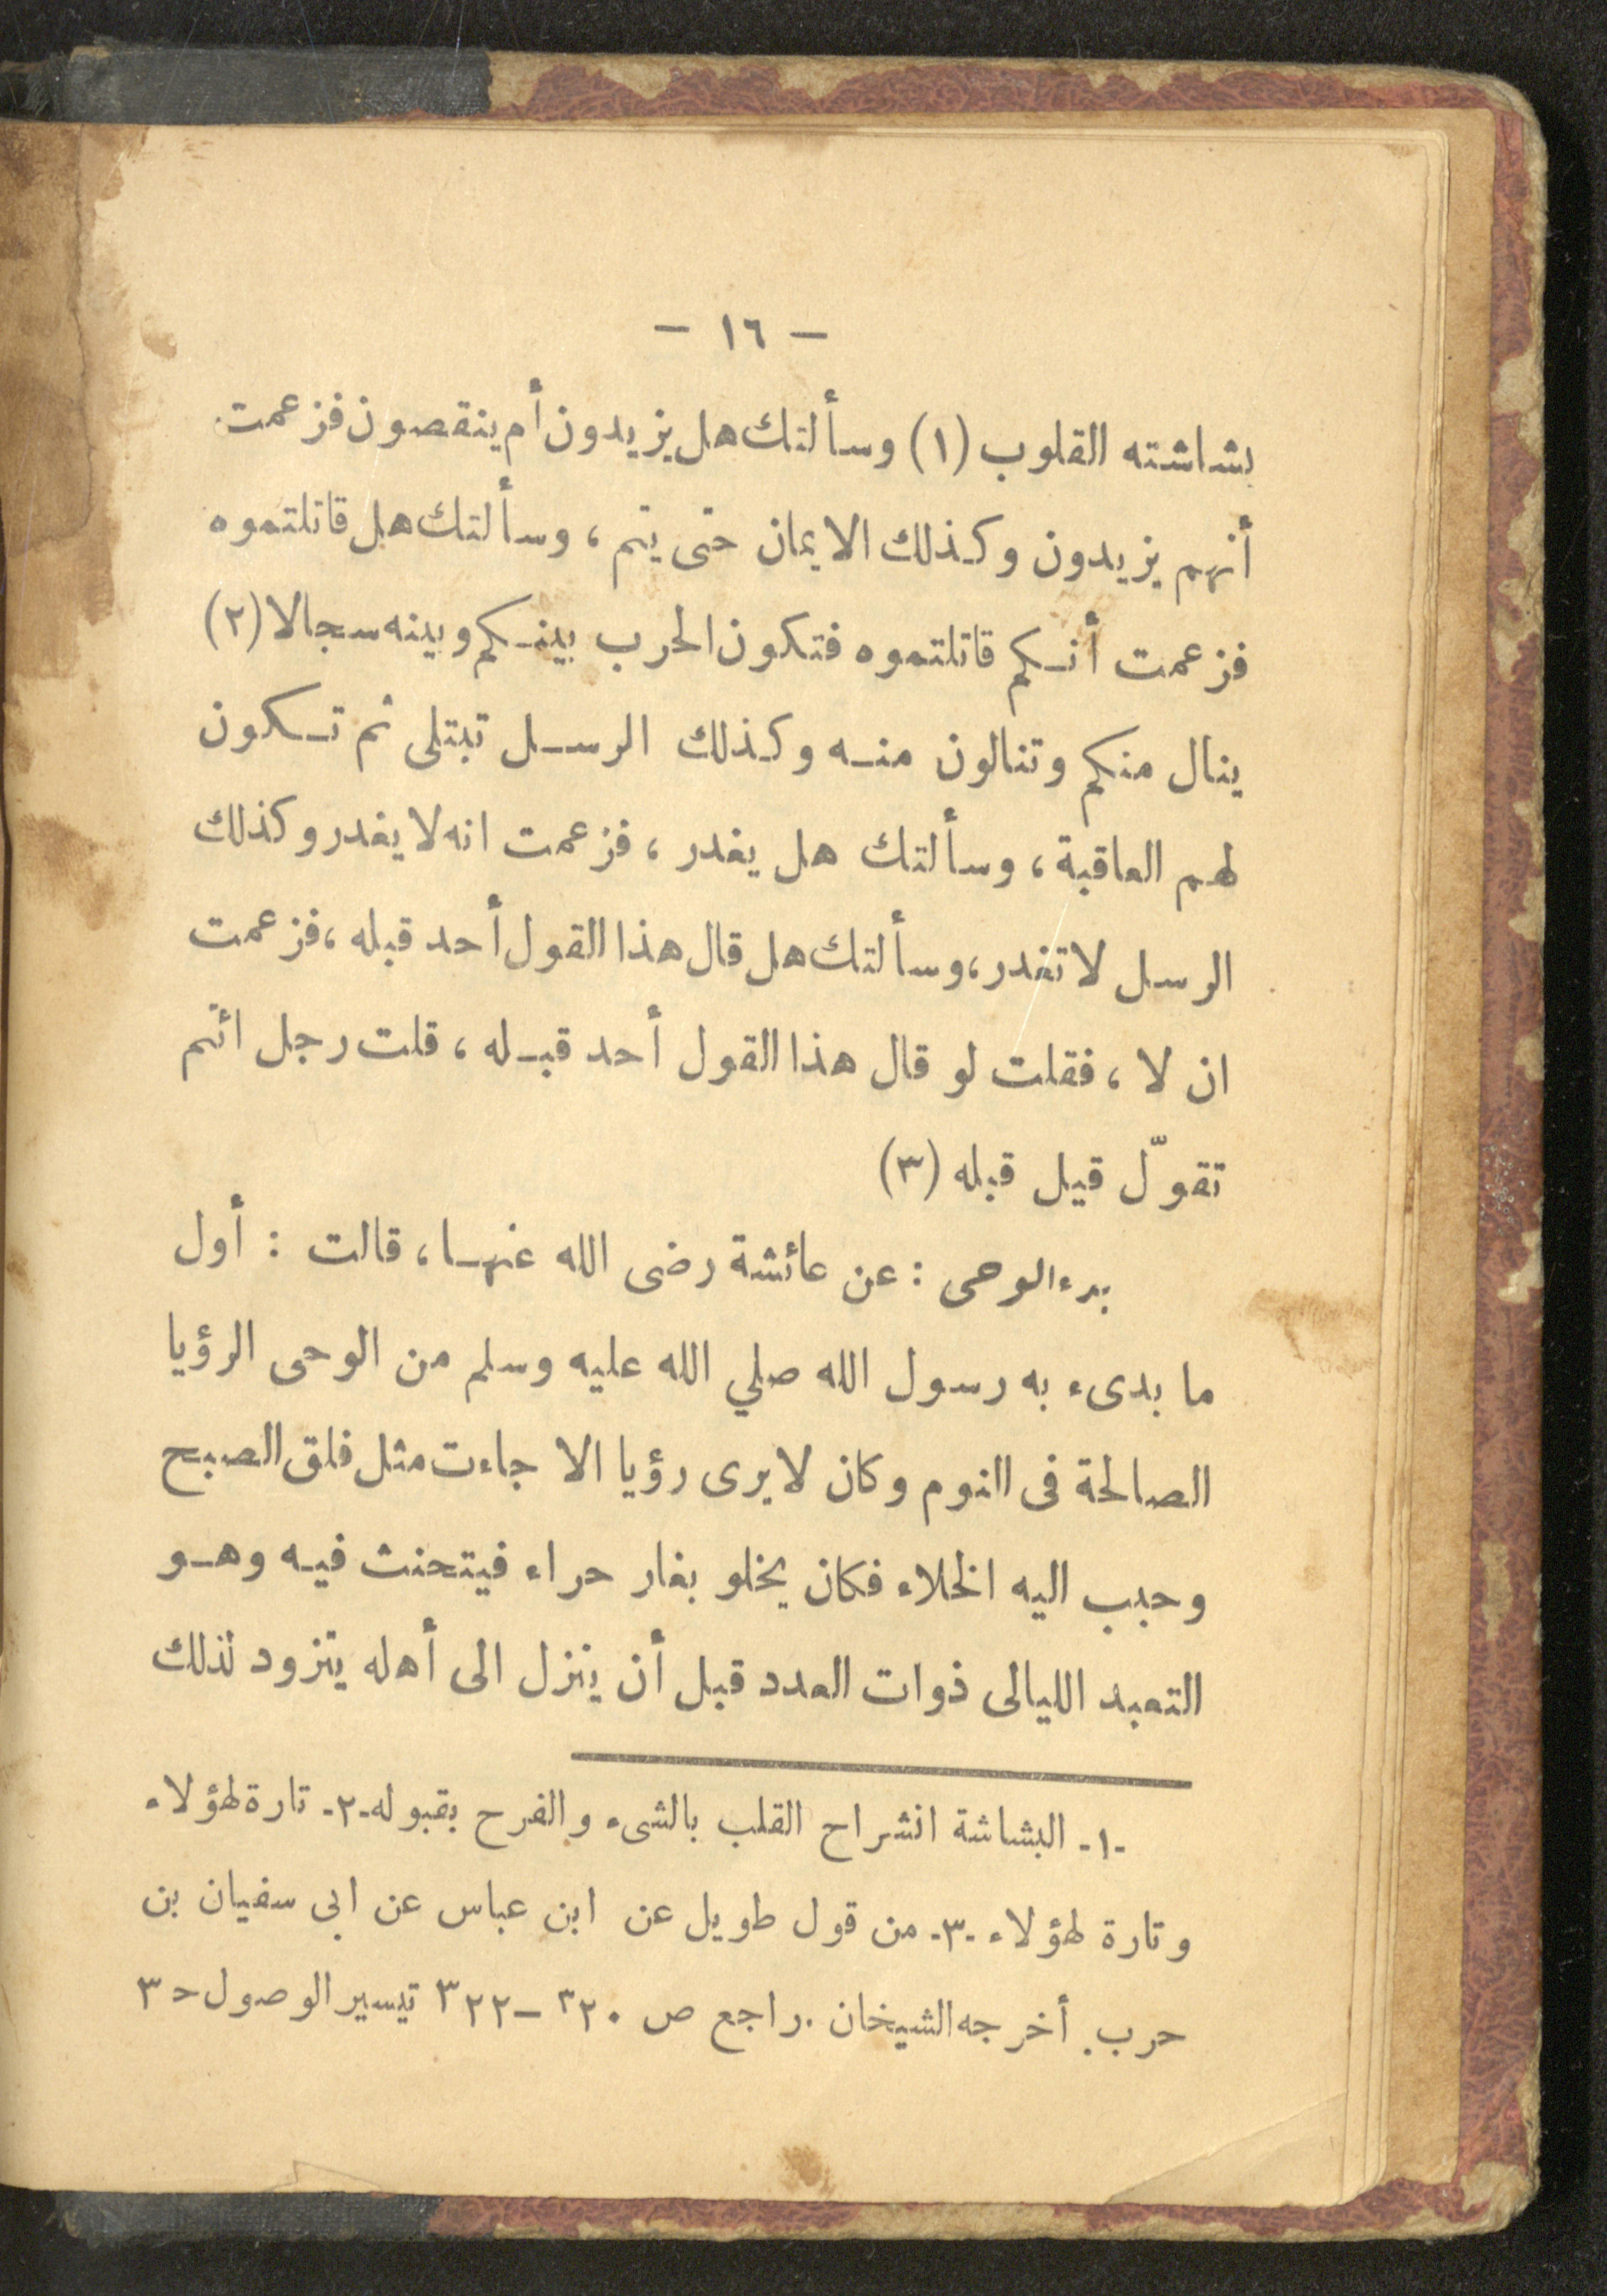 — ١٦ —
بشاشته القلوب (١) وسألتك هل يزيدون أم ينقصون فزعمت
أنهم يزيدون وكذلك الايمان حتى يتم ، وسألتك هل قاتلتموه
فزعمت أنكم قاتلتموه فتكون الحرب بينكم وبينه سجالا (٢)
ينال منكم وتنالون منه وكذلك الرسل تبتلى ثم تكون
لهم العاقبة ، وسألتك هل يغدر ، فزعمت انه لا يغدر وكذلك
الرسل لا تغدر ، وسألتك هل قال هذا القول أحد قبله ، فزعمت
ان لا ، فقلت لو قال هذا القول أحد قبله ، قلت رجل ائتم
تقوّل قيل قبله (٣)
بدء الوحى : عن عائشة رضى الله عنها ، قالت : أول
ما بدىء به رسول الله صلي الله عليه وسلم من الوحى الرؤيا
الصالحة فى النوم وكان لا يرى رؤيا الا جاءت مثل فلق الصبح
وحبب اليه الخلاء فكان يخلو بغار حراء فيتحنث فيه وهو
التعبد الليالى ذوات العدد قبل أن ينزل الى أهله يتزود لذلك
-١- البشاشة انشراح القلب بالشىء والفرح بقبوله -٢- تارة لهؤلاء
وتارة لهؤلاء -٣- من قول طويل عن ابن عباس عن ابى سفيان بن
حرب. أخرجه الشيخان . راجع ص ٣٢٠ — ٣٢٢ تيسير الوصول حـ ٣